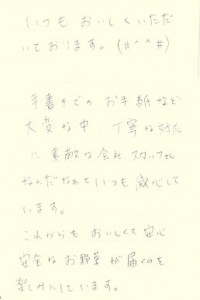 いつも おいしく いただ
いております。(#^^#)
手書きでの お手紙など
大変な中、丁寧な対応
に 素敵な会社、スタッフさん
なんだなぁと いつも 感心して
います。
これからも おいしくて 安心
安全な お野菜 が 届くのを
楽しみにしています。